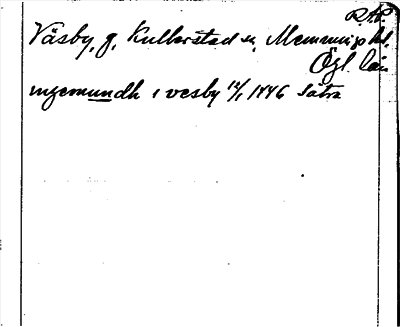 R.A.P.
Väsby, g, Kullerstad sn, Memmings hd,
Ögl. län
ingemundh i vesby 12/1 1446 Sätra